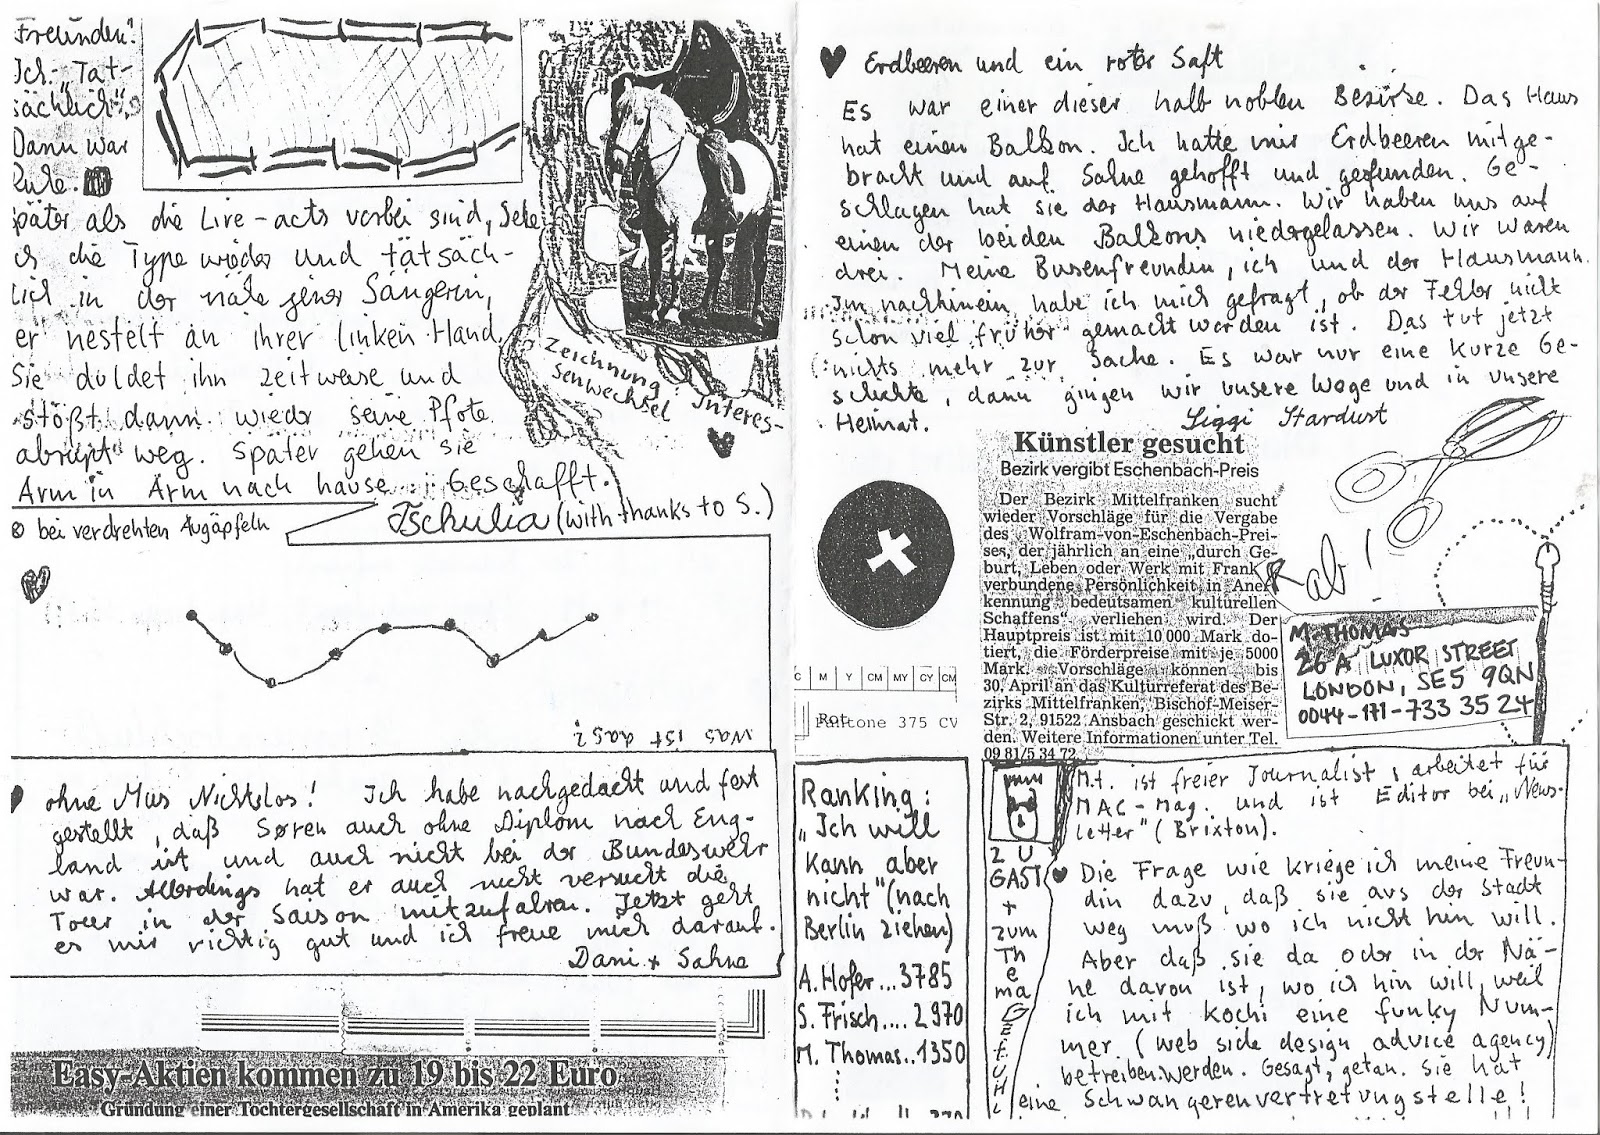 Freunden?
Ich: "Tat-
sächlich".
Dann war
Ruhe.
später als die Live-acts vorbei sind, sehe
ich die Type wieder und tätsäch-
lich in der nähe jener Sängerin,
er nestelt an ihrer linken Hand.
Sie duldet ihn zeitweise und
stößt dann wieder seine Pfote
abrupt weg. Später gehen sie
Arm in Arm nach hause. Geschafft.
Tschulia (with thanks to S.)
⊗ bei verdrehten Augäpfeln
Zeichnung:
Interes-
senwechsel
was ist das?
♥ ohne Mus Nichtslos! Ich habe nachgedacht und fest
gestellt, daß Søren auch ohne Diplom nach Eng-
land ist und auch nicht bei der Bundeswehr
war. Allerdings hat er auch nicht versucht die
Tour in der Saison mitzufahren. Jetzt geht
es mir richtig gut und ich freue mich darauf.
Dani + Sahne
Easy-Aktien kommen zu 19 bis 22 Euro
Gründung einer Tochtergesellschaft in Amerika geplant
♥ Erdbeeren und ein roter Saft
Es war einer dieser halb noblen Bezirke. Das Haus
hat einen Balkon. Ich hatte mir Erdbeeren mitge-
bracht und auf Sahne gehofft und gefunden. Ge-
schlagen hat sie der Hausmann. Wir haben uns auf
einen der beiden Balkons niedergelassen. Wir waren
drei. Meine Busenfreundin, ich und der Hausmann.
Im nachhinein habe ich mich gefragt, ob der Fehler nicht
schon viel früher gemacht worden ist. Das tut jetzt
nichts mehr zur Sache. Es war nur eine kurze Ge-
schichte, dann gingen wir unsere Wege und in unsere
Heimat.
Siggi Stardust
Künstler gesucht
Bezirk vergibt Eschenbach-Preis
Der Bezirk Mittelfranken sucht
wieder Vorschläge für die Vergabe
des Wolfram-von-Eschenbach-Prei-
ses, der jährlich an eine „durch Ge-
burt, Leben oder Werk mit Franken
verbundene Persönlichkeit in Aner-
kennung bedeutsamen kulturellen
Schaffens" verliehen wird. Der
Hauptpreis ist mit 10 000 Mark do-
tiert, die Förderpreise mit je 5000
Mark. Vorschläge können bis
30. April an das Kulturreferat des Be-
zirks Mittelfranken, Bischof-Meiser-
Str. 2, 91522 Ansbach geschickt wer-
den. Weitere Informationen unter Tel.
09 81/5 34 72.
ab!
M. THOMAS
26 A LUXOR STREET
LONDON, SE5 9QN
0044-171-733 35 24
C M Y CM MY CY CM
Pantone 375 CV
Ranking:
"Ich will
kann aber
nicht" (nach
Berlin ziehen)
A. Hofer...3785
S. Frisch....2970
M. Thomas..1350
ZU
GAST
+
zum
Th
e
ma
M.t. ist freier Journalist, arbeitet für
MAC-Mag. und ist Editor bei „News-
letter" (Brixton).
♥ Die Frage wie kriege ich meine Freun-
din dazu, daß sie aus der Stadt
weg muß wo ich nicht hin will.
Aber daß sie da oder in der Nä-
he davon ist, wo ich hin will, weil
ich mit Kochi eine funky Num-
mer (web side design advice agency)
betreiben werden. Gesagt, getan. Sie hat
eine Schwangerenvertretungstelle!